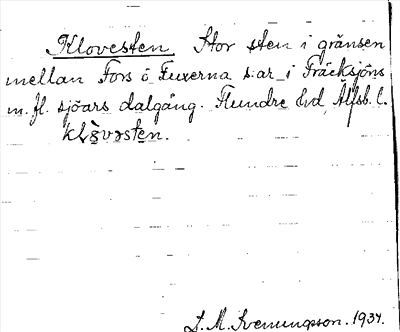 Klovesten Stor sten i gränsen
mellan Fors o. Fuxerna s:ar i Fräcksjöns
m. fl. sjöars dalgång. Flundre hd, Älfsb. l.
klòvəsten.
L. M. Svenungsson. 1934.